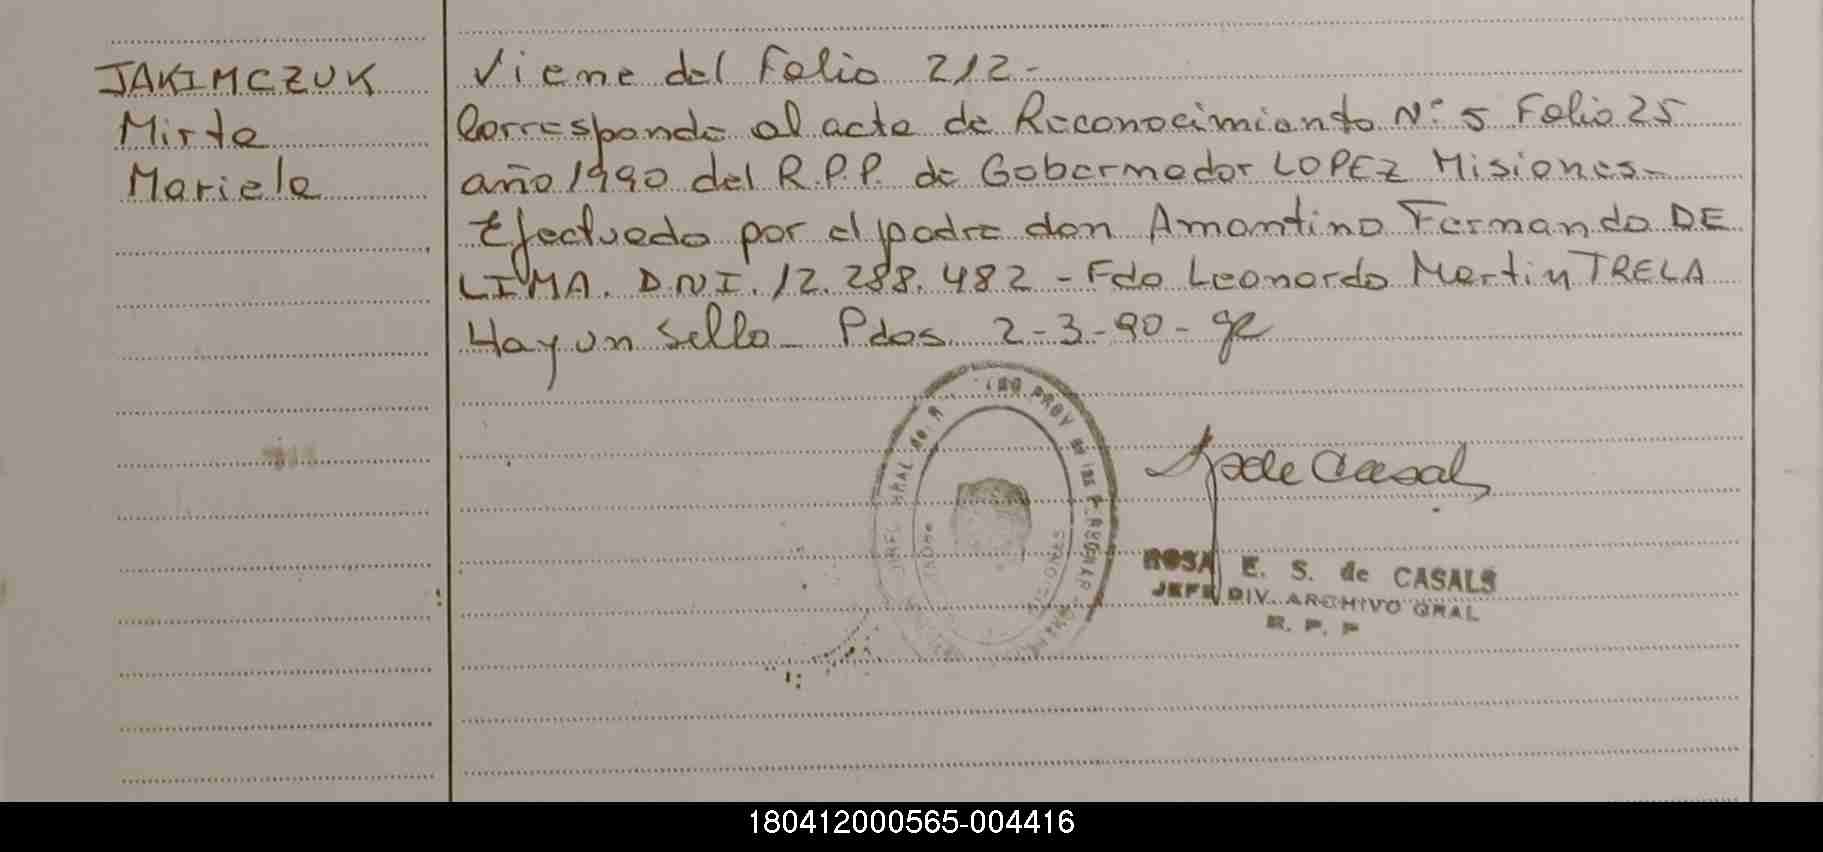 JAKIMCZUK
Mirta
Mariela
Viene del Folio 212-
Corresponde al acta de Reconocimiento Nº 5 Folio 25
año 1990 del R.P.P. de Gobernador LOPEZ Misiones-
Efectuado por el padre don Amantino Fernando DE
LIMA. D.N.I. 12.288.482 - Fdo Leonardo Martin TRELA
Hay un Sello - Pdas 2-3-90-
de Casals
ROSA E. S. de CASALS
JEFE DIV. ARCHIVO GRAL
R. P. P
180412000565-004416